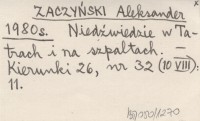 ZACZYŃSKI Aleksander
1980s. Niedźwiedzie w Ta-
trach i na szpaltach. —
Kierunki 26, nr 32 (10 VIII):
11.